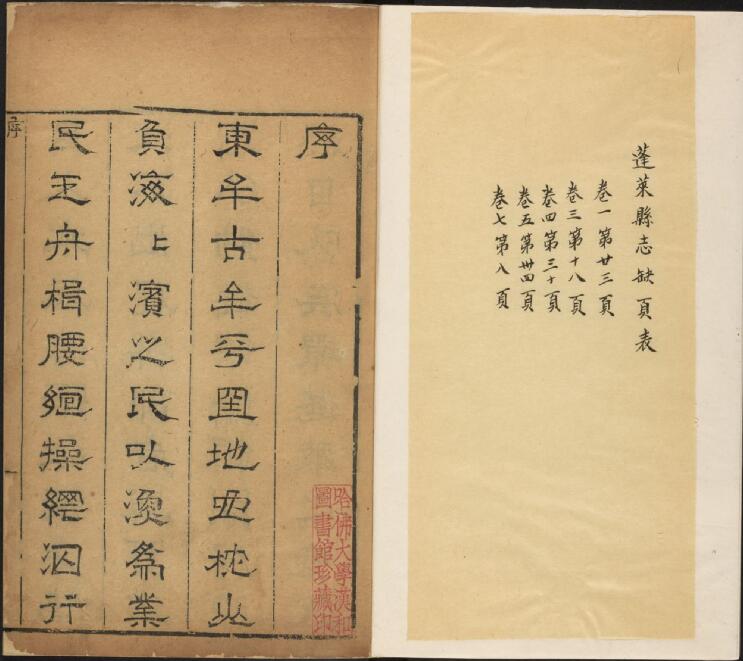 蓬萊縣志缺頁表
卷一第廿三頁
卷三第十八頁
卷四第三十頁
卷五第卅四頁
卷七第八頁
序
東牟古牟平國地也枕山
負海上濱之民以漁為業
民王舟楫腰絙操網泅行
序
哈佛大學漢和
圖書館珍藏印